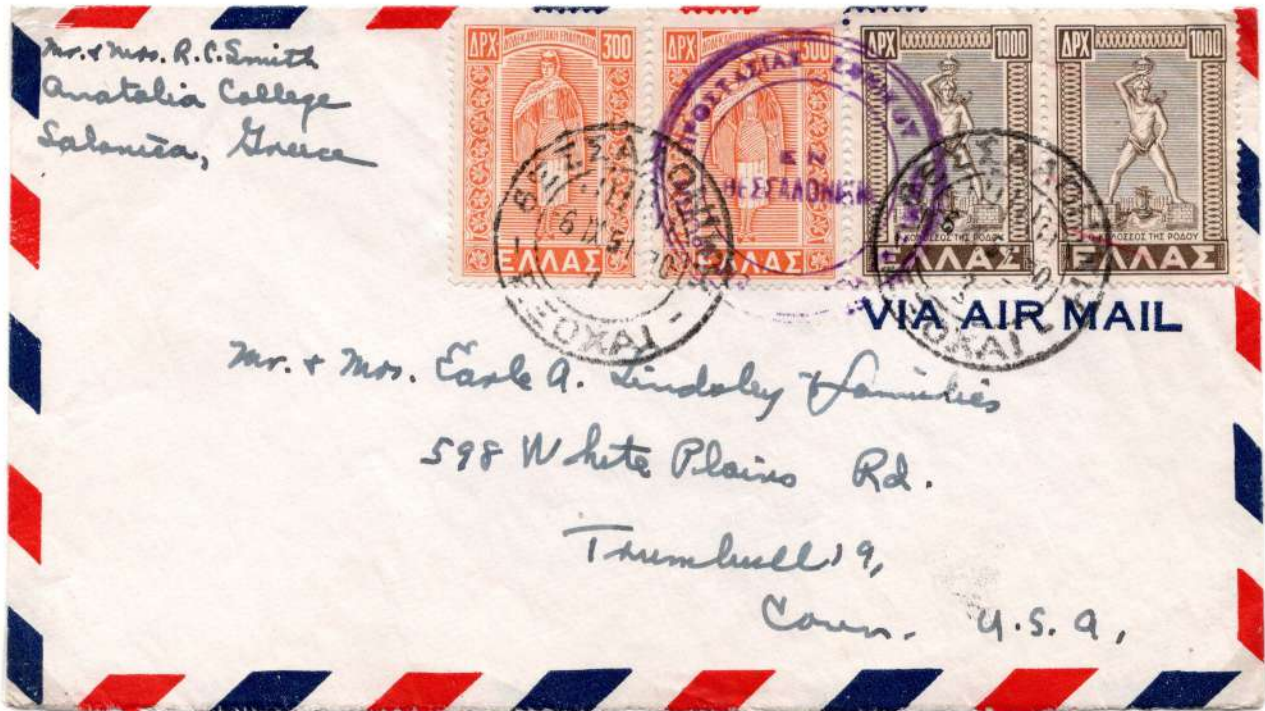 Mr. & Mrs. R. C. Smith
Anatolia College
Salonica, Greece
ΔΡΧ ΔΩΔΕΚΑΝΗΣΙΑΚΗ 300
ΕΛΛΑΣ
ΔΡΧ 300
ΕΛΛΑΣ
ΔΡΧ 1000
Ο ΚΟΛΟΣΣΟΣ ΤΗΣ ΡΟΔΟΥ
ΕΛΛΑΣ
ΔΡΧ 1000
Ο ΚΟΛΟΣΣΟΣ ΤΗΣ ΡΟΔΟΥ
ΕΛΛΑΣ
ΠΡΟΣΤΑΣΙΑΣ ΕΘΝΙΚΟΥ
ΕΝ
ΘΕΣΣΑΛΟΝΙΚΗ
ΘΕΣΣΑΛΟΝΙΚΗ
ΕΞΟΧΑΙ
VIA AIR MAIL
Mr. & Mrs. Earle A. Lindsley & families
598 White Plains Rd.
Trumbull 19,
Conn. U.S.A.